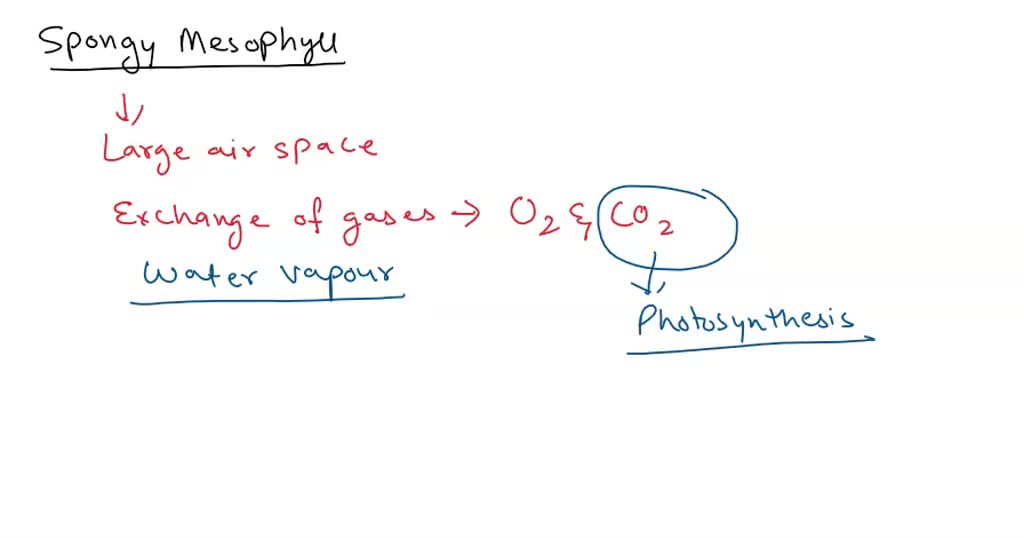 Spongy Mesophyll
↓
Large air space
Exchange of gases → O₂ & CO₂
Water vapour
↓
Photosynthesis